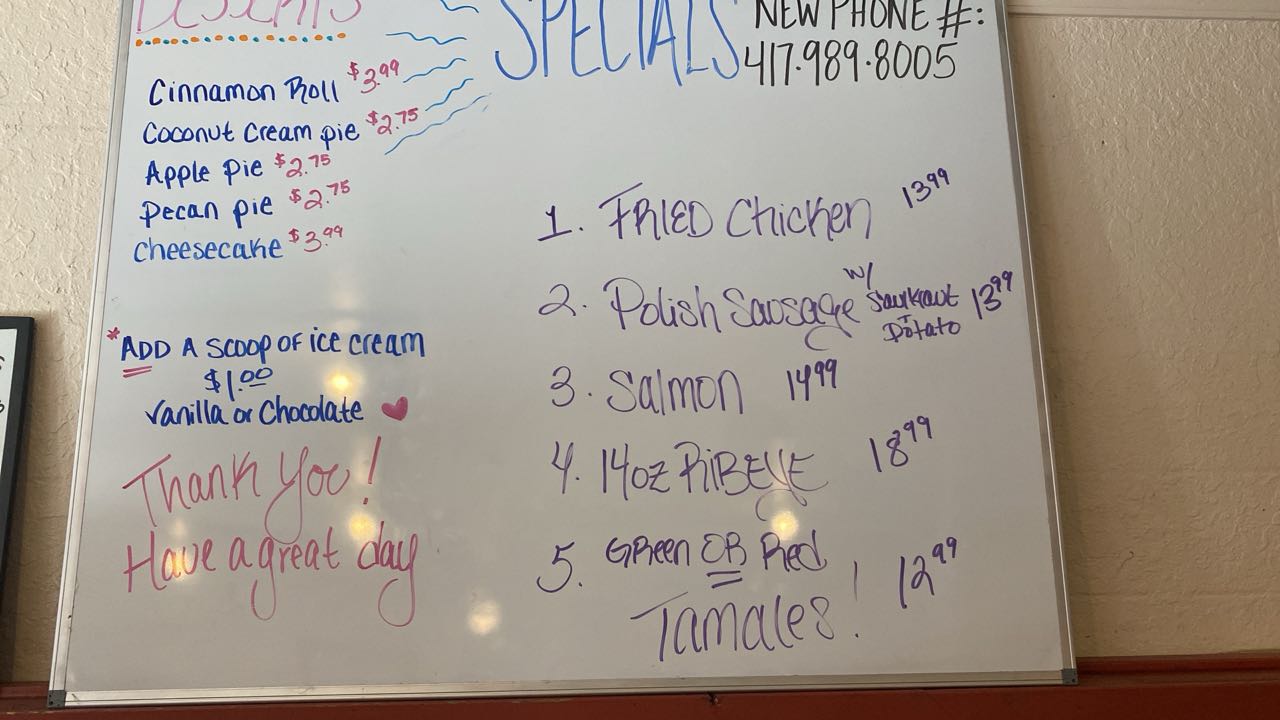 DESSERTS
Cinnamon Roll $3.99
Coconut Cream pie $2.75
Apple pie $2.75
Pecan pie $2.75
Cheesecake $3.99
*ADD A scoop of ice cream
$1.00
Vanilla or Chocolate
Thank you!
Have a great day
SPECIALS
NEW PHONE #:
417.989.8005
1. FRIED Chicken 13.99
2. Polish Sausage w/ Saurkraut + Potato 13.99
3. Salmon 14.99
4. 14oz RiBEYE 18.99
5. Green OR Red
Tamales! 12.99